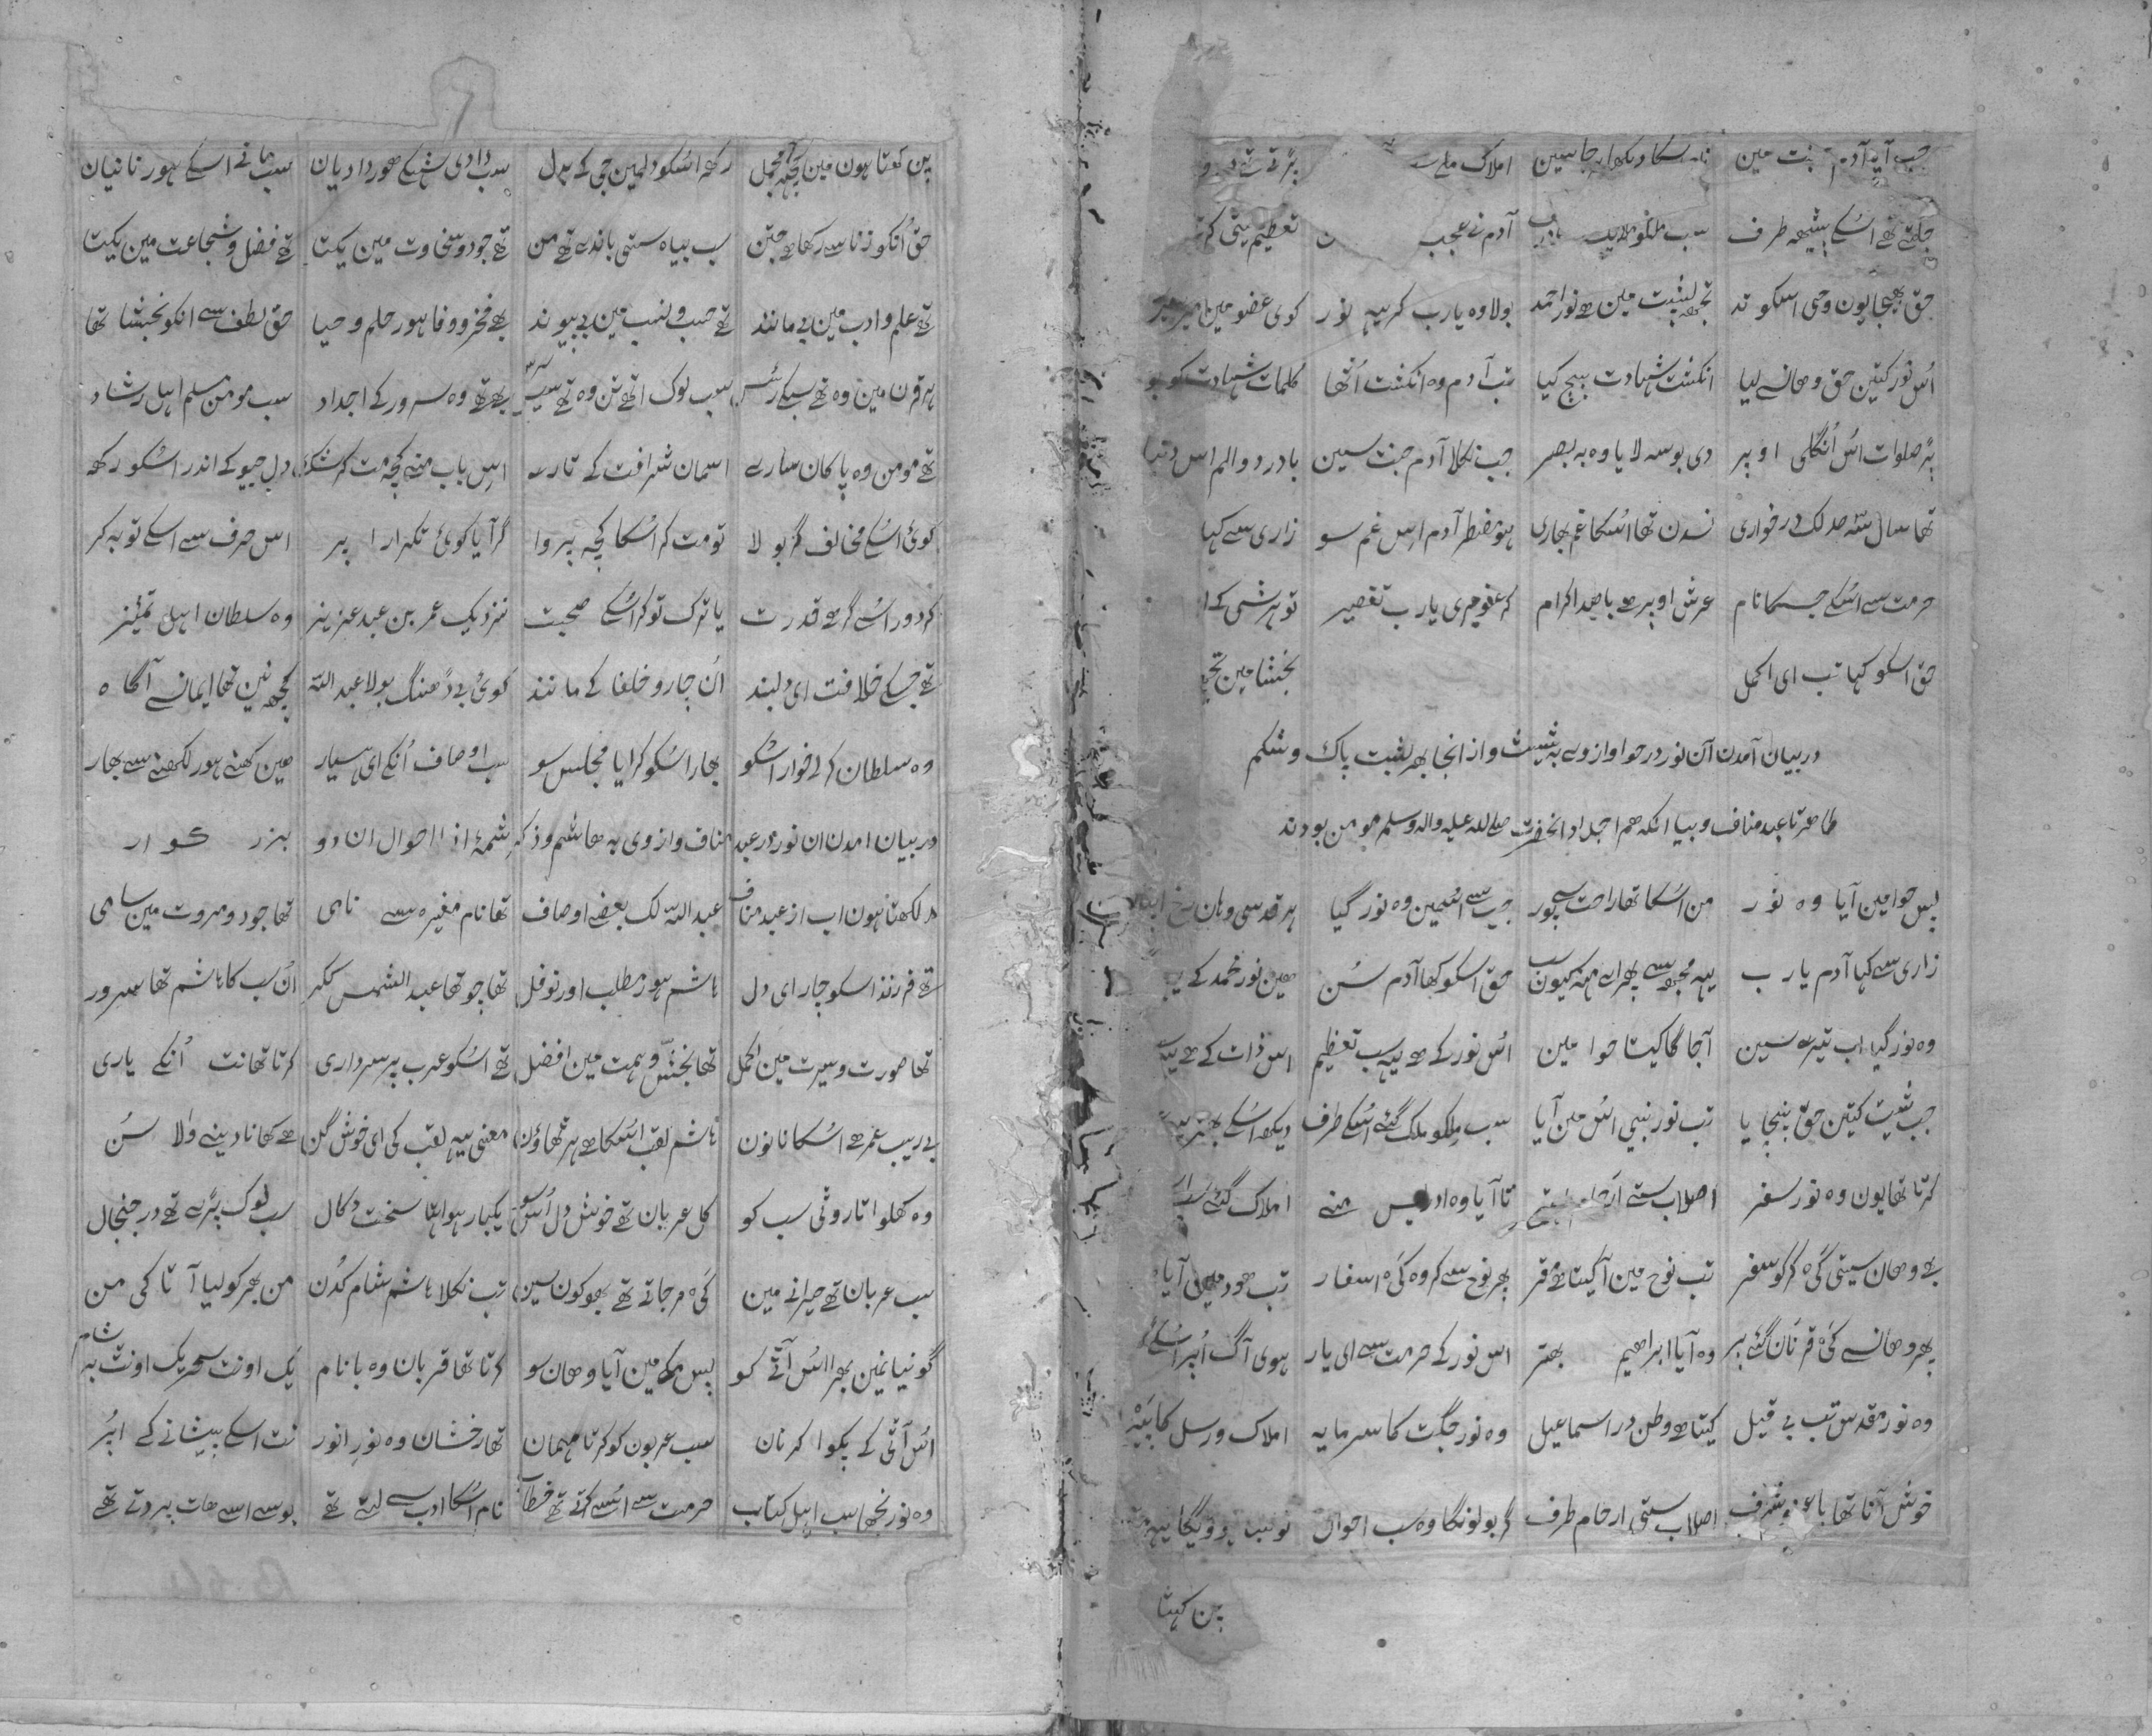 جب آیا آدم جنت مین نام اسکا دیکھا ہر جا سین املاک ملے پڑتے تھے درو
چلتے تھے اسکے پیٹھہ طرف سب ملکو ملایک آدم نے عجب تعظیم نبی کر
حق بھیجا یون وحی اسکو تد تجہ پشت مین ہے نور احمد بولا وہ یارب کر یہ نور کوی عضو مین
اُس نور کتین حق وھانسے لیا انکشت شہادت بیچ کیا تب آدم وہ انکشت اُٹھا کلمات شہادت کو
پڑ صلوات اُس اُنگلی اوپر دی بوسہ لایا وہ بہ بصر جب نکلا آدم جنت سین با درد و الم اس دنیا
تھا سال سہ صد لک در خواری نسدن تھا اُسکا غم بھاری ہو مضطر آدم اس غم سو زاری سے کہا
حرمت سے اُسکے جسکا نام عرش اوپر ہے باصد اکرام کر عفو میری یارب تقصیر تو ہر شی کے
حق اسکو کہا تب ای اکمل بخشا مین تجہ
در بیان آمدن آن نور در حوا و از وے به شیث و از انجا بهر پشت پاک و شکم
طاهر تا عبد مناف و بیا انکه هم اجداد انحضرت صلے الله علیه واله وسلم مومن بودند
پس حوا مین آیا وہ نور من اُسکا تھا راحت سے پور جب سے اُسمین وہ نور گیا ہر قدسی وہان رخ
زاری سے کہا آدم یارب یہہ مجھہ سے پھراے منہ کیون سب حق اسکو کھا آدم سُن ھین نور محمد کے
وہ نور گیا اب تیرے سین آ جا گا کیتا حوا مین اُس نور کے ھے یہہ سب تعظیم اس ذات کے ھے یہہ
جب شیث کتین حق پنچایا تب نور نبی اُس مین آیا سب ملکو ملک گئے اُسکے طرف دیکھہ اُسکے بھتر یہہ
کرتا تھا یون وہ نور سفر اصلاب ستے ارحام تا آیا وہ ادریس منے املاک گئے
بے وھان سیتی کَی کر کو سفر تب نوح مین آ کیتا ھے مقر پھر نوح سے کر وہ کَی اسفار تب ھود آیا
پھر وھانسے کَی قرنان گئے پر وہ آیا ابراھیم بھتر اس نور کے حرمت سے ای یار ہوی آگ اُپر اُسکے
وہ نور مقدس تب بے قیل کیتا ھے وطن در اسماعیل وہ نور جگت کا سرمایہ املاک و رسل کا
خوش آتا تھا با عز و شرف اصلاب ستی ارحام طرف گر بولونگا وہ سب احوال
پن کہتا
پن کھتا ہون مین کچہہ مجمل رکھہ اُسکو دلمین جی کے بدل سب دادی شہکے ھور دادیان سب مانے اسکے ہور نانیان
حق اُنکو زنا سے رکھا ھے جتن سب بیاہ ستی باندے تھے من تھے جود و سخاوت مین یکتا تھے فضل و شجاعت مین یکتا
تھے علم و ادب مین بے مانند تھے حسب و نسب مین بے پیوند بھے فخر و وفا ہور حلم و حیا حق لطف سے انکو بخشا تھا
ہر قرن مین وہ تھے سبکے رئس سب لوک اتھے تن وہ تھے سیس بھے تھے وہ سرور کے اجداد سب مومن مسلم اہل رشاد
تھے مومن وہ پاکان سارے اسمان شرافت کے تارے اس باب منے کچہ مت کر شک دل جیو کے اندر اسکو رکھہ
کوئی اسکے مخالف گر بولا تو مت کر اُسکا کچہ پروا گر آیا کوئی تکرار اپر اس حرف سے اسکے توبہ کر
کر دور اُسے گر ھے قدرت یا ترک تو کر اُسکے صحبت نزدیک عمر بن عبد عزیز وہ سلطان اہل تمئیز
تھے جسکے خلافت ای دلبند اُن چارو خلفا کے مانند کوئی بے ڈھنگ بولا عبد اللّٰہ کچھہ نین تھا ایمانسے آگاہ
وہ سلطان کر لے خوار اُسکو بھار اُسکو کرایا مجلس سو سب اوصاف اُنکے ای ہسیار ھین کھنے ہور لکھنے سے بھار
در بیان امدن ان نور در عبد مناف و از وی به هاشم و ذکر شمهٔ از احوال ان دو بزر کوار
لکھتا ہون اب از عبد مناف عبد اللّٰہ لک بعضے اوصاف تھا نام مغیرہ سے نامی تھا جود و مروت مین سامی
تھے فرزند اسکو چار ای دل ہاشم ہور مطلب اور نوفل تھا چوتھا عبد الشمس ککر اُن سب کا ہاشم تھا سرور
تھا صورت و سیرت مین اکمل تھا بخشش و ہمت مین افضل تھے اُسکو عرب پر سرداری کرتا تھا نت اُنکے یاری
بے ریب عمر ھے اُسکا نانون ہاشم لقب اُسکا ھے ہر ٹھاؤن معنی یہہ لقب کی ای خوش گن ھے کھانا دینے والا سُن
وہ کھلواتا روٹی سب کو کل عربان تھے خوش دل اُس سو یکبار ہوا تھا سخت دکال سب لوک پڑے تھے در جنجال
سب عربان تھے حیرانے مین کَی مر جاتے تھے بھوکون سین تب نکلا ہاشم شام کدُن من بھر کو لیا آتا کی من
گونیا نمین بھرا اُس آٹے کو پس مکہ مین آیا وھان سو کرتا تھا قربان وہ با نام یک اونٹ سحر یک اونٹ بہ شام
اُس آٹے کے پکوا کر نان سب عربون کو کرتا مہمان تھا رخشان وہ نور انور نت اسکے پیشانے کے اُپر
وہ نور نچھا سب اہل کتاب حرمت سے اُسے کرتے تھے خطاب نام اُسکا ادب سے لیتے تھے بوسے اسے ھات پر دتے تھے